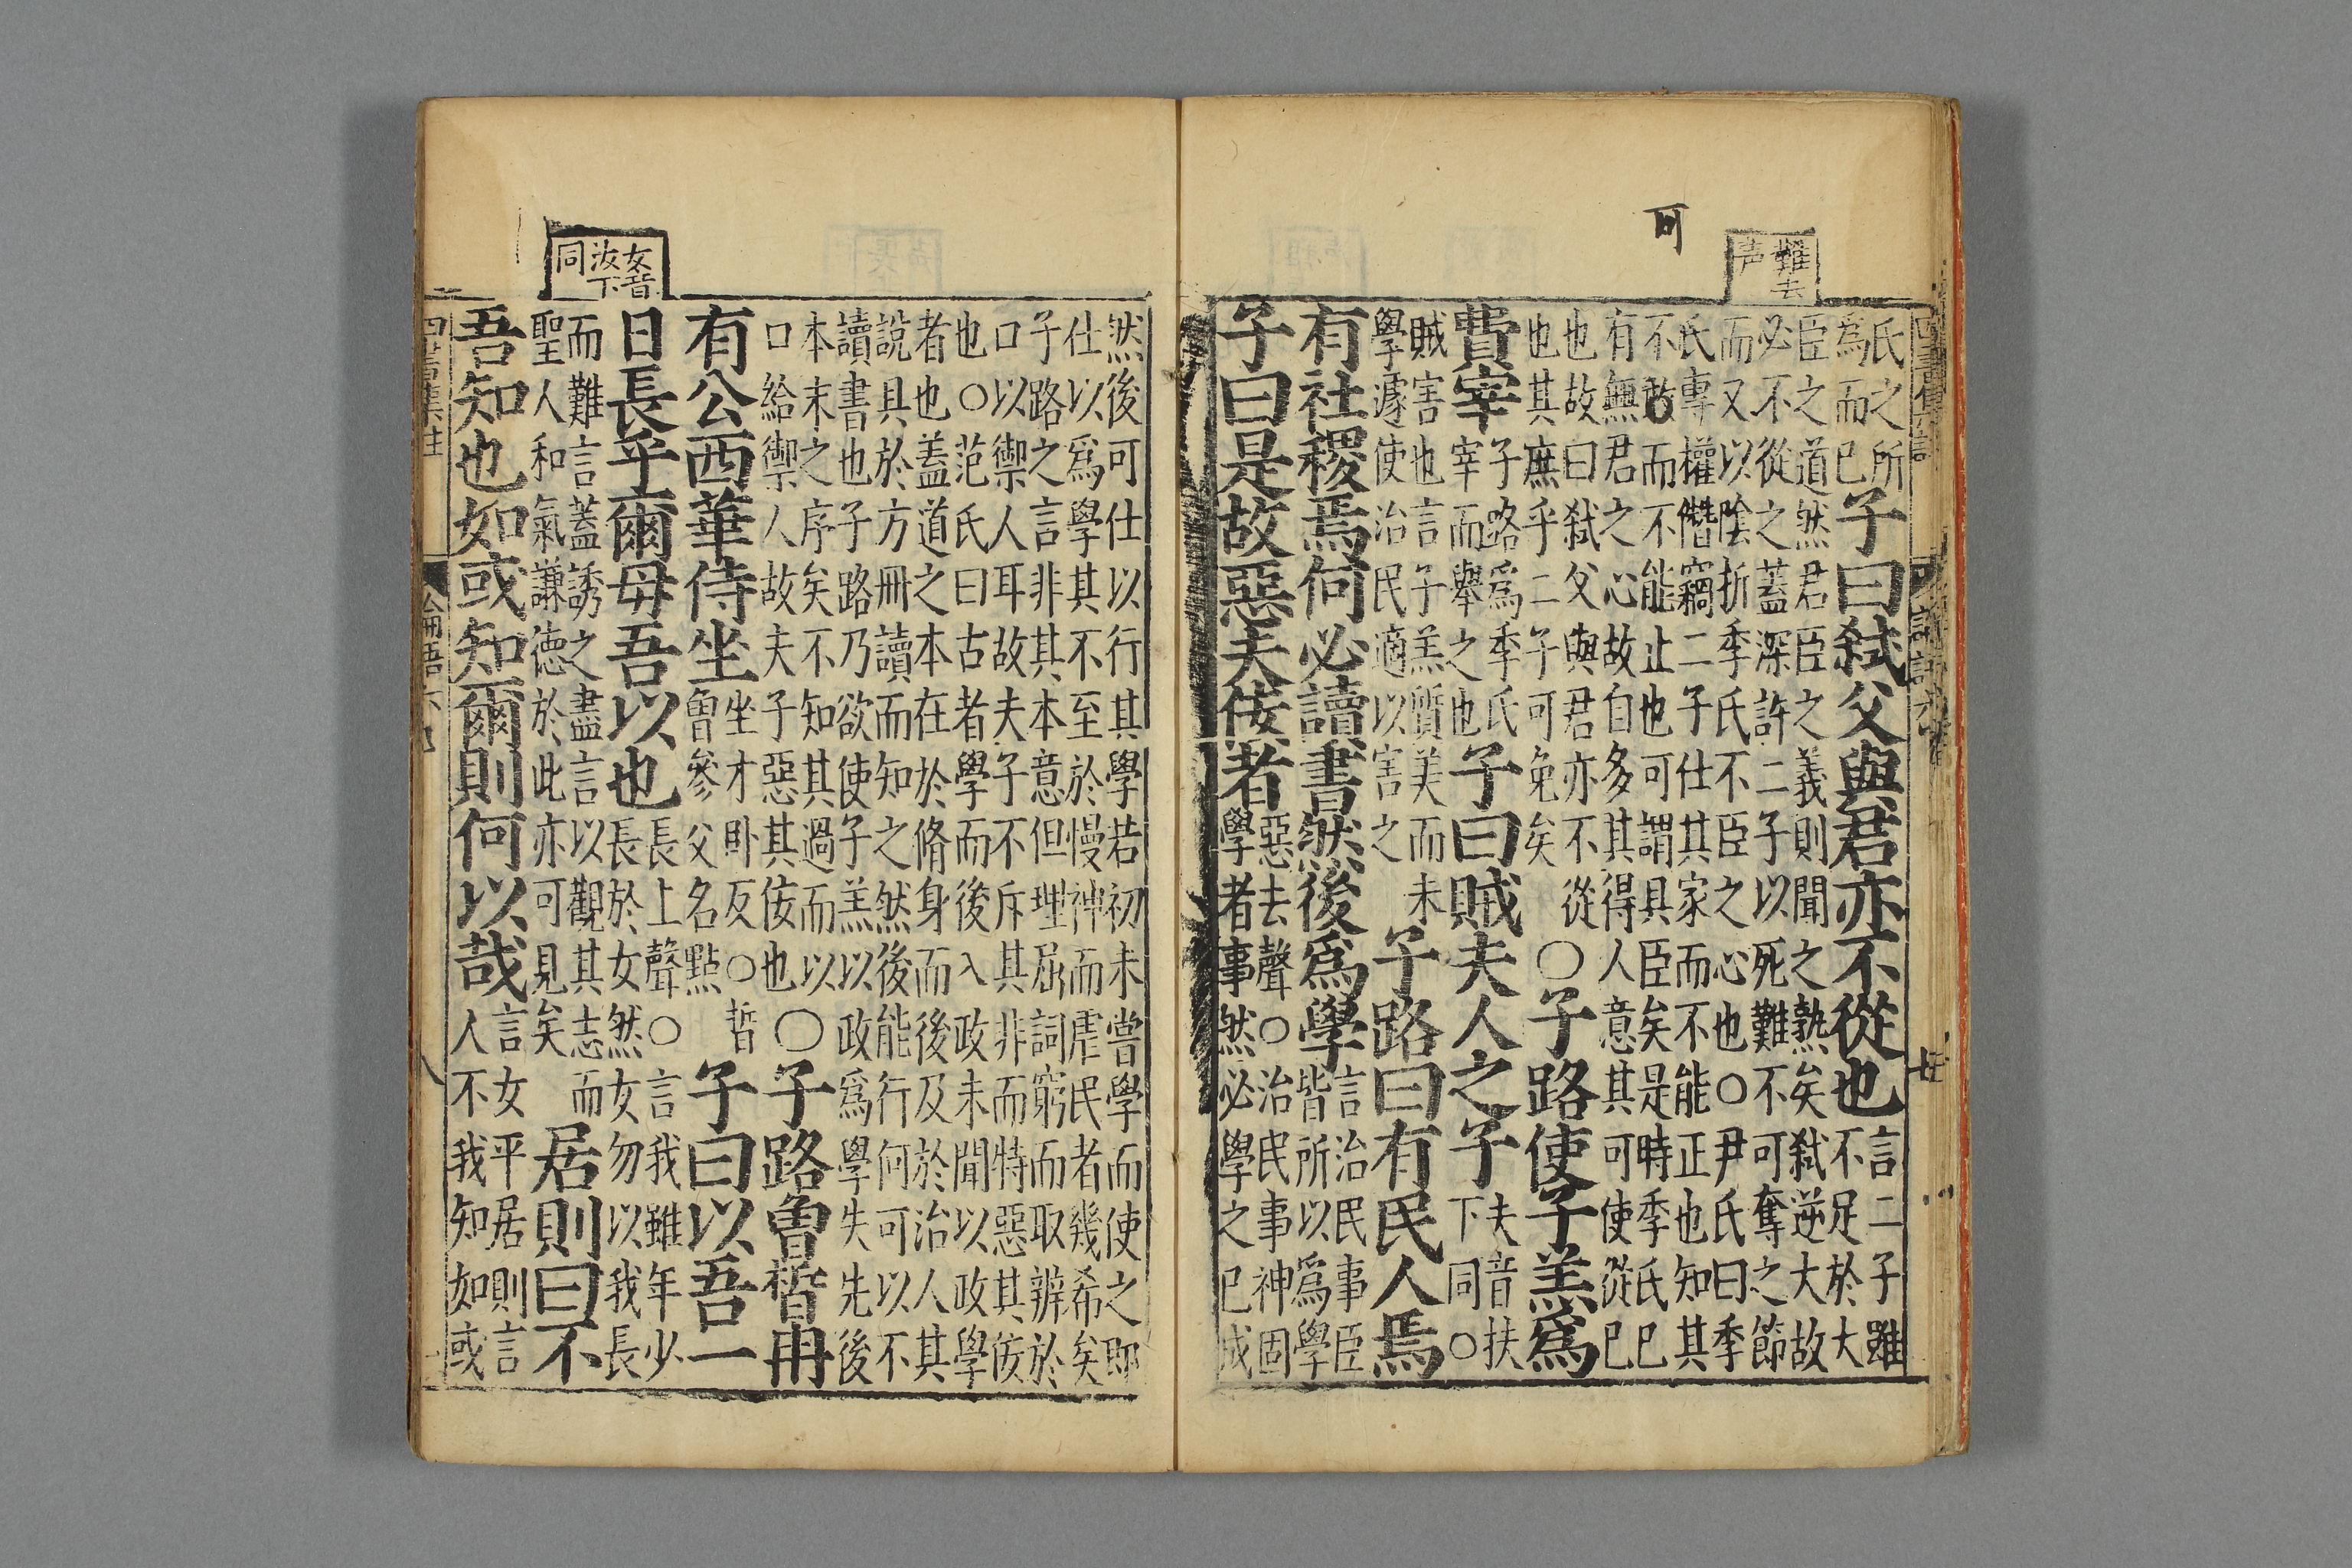 難去
声
可
氏之所
爲而已
子曰弑父與君亦不從也
言二子雖
不足於大
臣之道然君臣之義則聞之熟矣弑逆大故
必不從之蓋深許二子以死難不可奪之節
而又以陰折季氏不臣之心也○尹氏曰季
氏專權僭竊二子仕其家而不能正也知其
不敢而不能止也可謂具臣矣是時季氏已
有無君之心故自多其得人意其可使從已
也故曰弑父與君亦不從
也其庶乎二子可免矣
○子路使子羔爲
費宰
子路爲季氏
宰而舉之也
子曰賊夫人之子
夫音扶
下同○
賊害也言子羔質美而未
學遽使治民適以害之
子路曰有民人焉
有社稷焉何必讀書然後爲學
言治民事臣
皆所以爲學
子曰是故惡夫佞者
惡去聲○治民事神固
學者事然必學之已成
女音
汝下
同
然後可仕以行其學若初未嘗學而使之即
仕以爲學其不至於慢神而虐民者幾希矣
子路之言非其本意但理屈詞窮而取辨於
口以禦人耳故夫子不斥其非而特惡其佞
也○范氏曰古者學而後入政未聞以政學
者也蓋道之本在於脩身而後及於治人其
說具於方冊讀而知之然後能行何可以不
讀書也子路乃欲使子羔以政爲學失先後
本末之序矣不知其過而以
口給禦人故夫子惡其佞也
○子路曾晳冉
有公西華侍坐
坐才卧反○晳
曾參父名點
子曰以吾一
日長乎爾毋吾以也
長上聲○言我雖年少
長於女然女勿以我長
而難言蓋誘之盡言以觀其志而
聖人和氣謙德於此亦可見矣
居則曰不
吾知也如或知爾則何以哉
言女平居則言
人不我知如或
四書集註
論語六